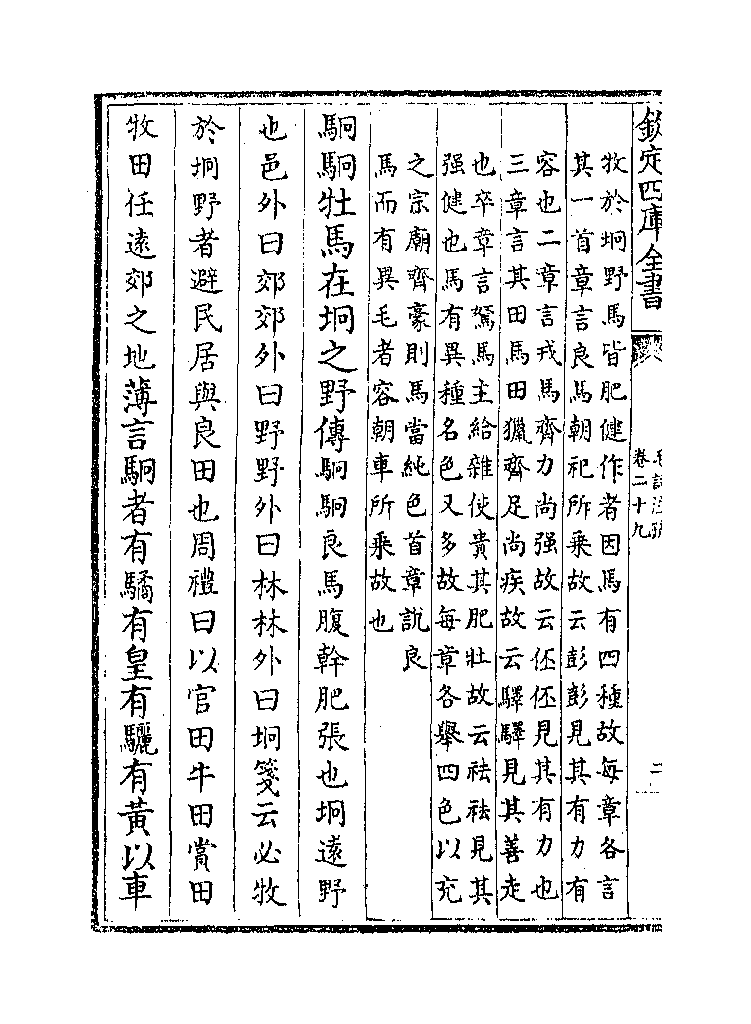 欽定四庫全書
卷二十九
二
牧於坰野馬皆肥健作者因馬有四種故每章各言
其一首章言良馬朝祀所乗故云彭彭見其有力有
容也二章言戎馬齊力尚强故云伾伾見其有力也
三章言其田馬田獵齊足尚疾故云驛驛見其善走
也卒章言駑馬主給雜使貴其肥壯故云祛祛見其
强健也馬有異種名色又多故每章各舉四色以充
之宗廟齊豪則馬當純色首章説良
馬而有異毛者容朝車所乗故也
駉駉牡馬在坰之野傳駉駉良馬腹幹肥張也坰遠野
也邑外曰郊郊外曰野野外曰林林外曰坰箋云必牧
於坰野者避民居與良田也周禮曰以官田牛田賞田
牧田任遠郊之地薄言駉者有驈有皇有驪有黄以車